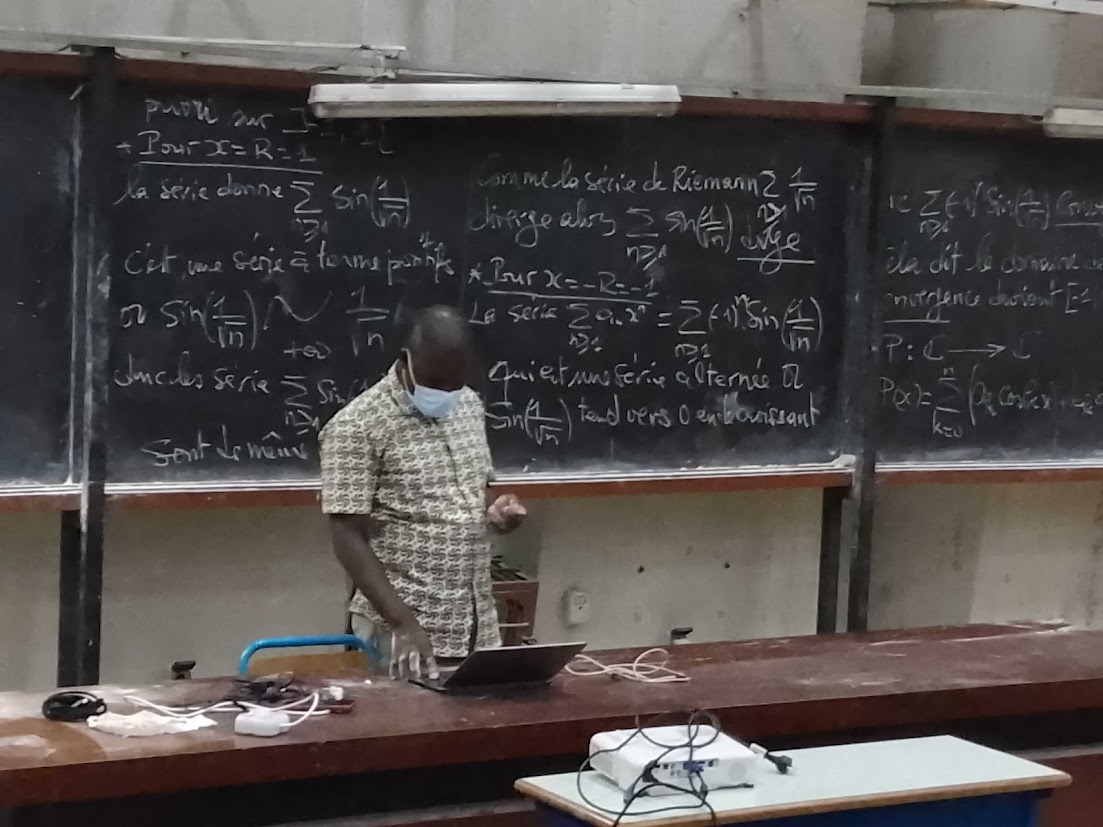 priori sur
* Pour x = R = 1
la série donne ∑ n≥1 Sin(1/√n)
C'est une série à terme positifs
or Sin(1/√n) ~ +∞ 1/√n
donc les série ∑ n≥1 Sin
Sont de même
Comme la série de Riemann ∑ n≥1 1/√n
diverge alors ∑ n≥1 sin(1/√n) dvge
* Pour x = -R = -1
La série ∑ n≥1 aₙxⁿ = ∑ n≥1 (-1)ⁿ Sin(1/√n)
qui est une série alternée or
Sin(1/√n) tend vers 0 en
∑ n≥1 (-1)ⁿ Sin(1/√n)
dit le domaine
onvergence devient [-1,
P : ℂ → ℂ
P(x) = ∑ k=0 n (aₖ cos(kx) +